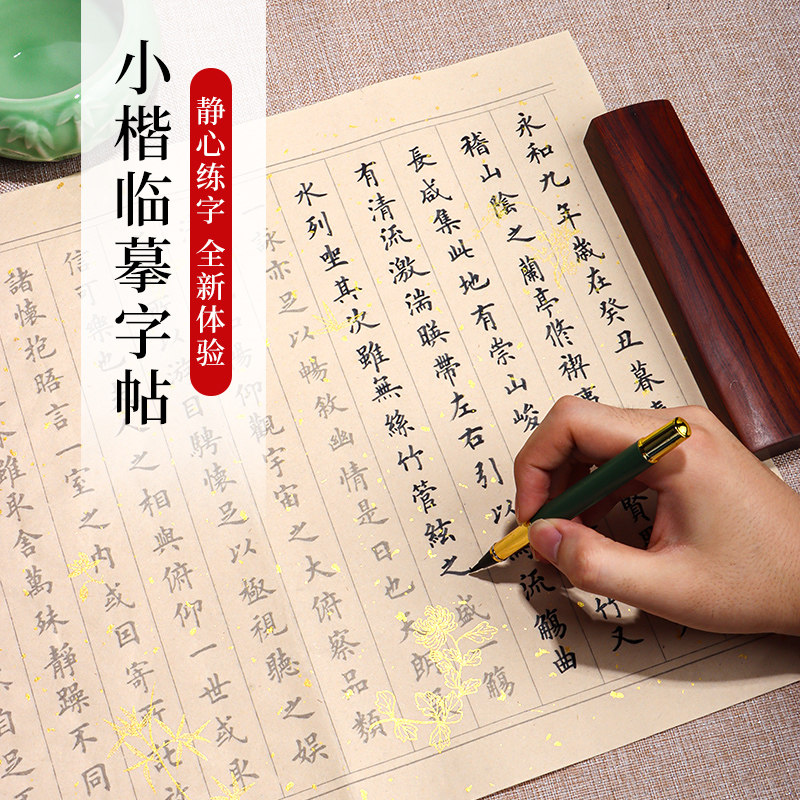 小楷临摹字帖
静心练字 全新体验
永和九年歲在癸丑暮
稽山陰之蘭亭修禊事 賢
長咸集此地有崇山峻 竹又
有清流激湍暎帶左右引以 流觴曲
水列坐其次雖無絲竹管絃之盛一觴
一詠亦足以暢敘幽情是日也天朗
仰觀宇宙之大俯察品類
遊目騁懷足以極視聽之娛
信可樂也 之相與俯仰一世或取
諸懷抱晤言一室之内或因寄所託
雖取舍萬殊靜躁不同
自足